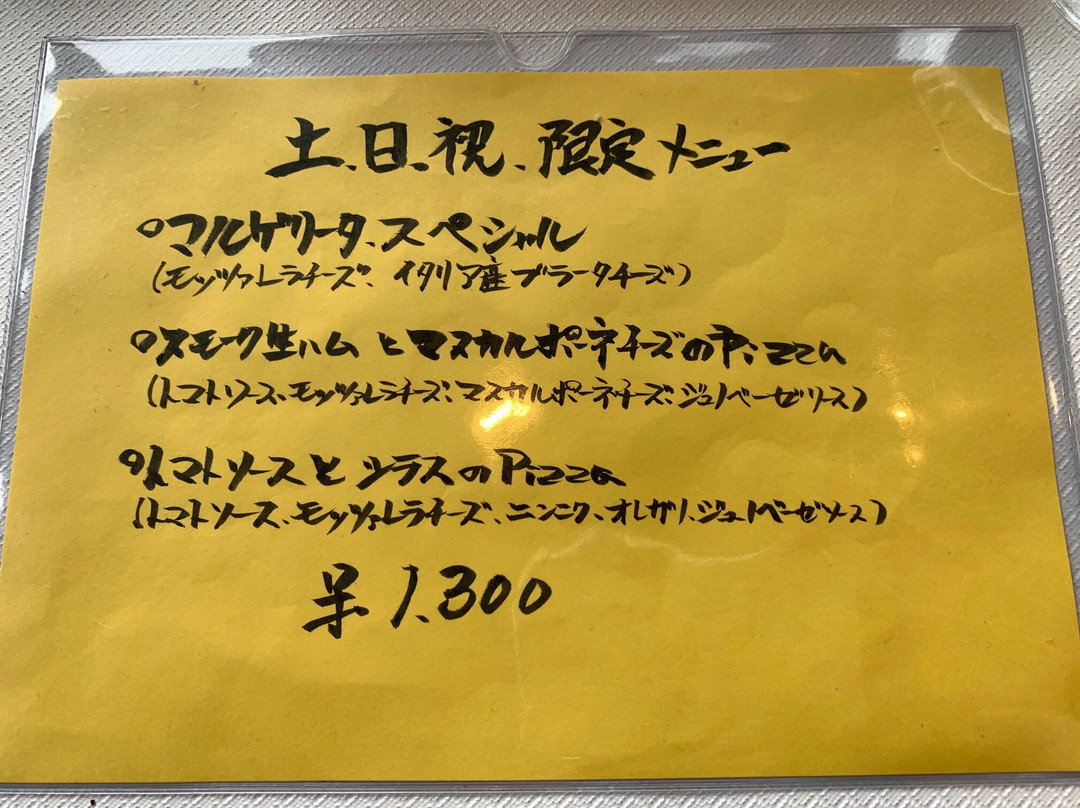 土、日、祝、限定メニュー
○マルゲリータ、スペシャル
(モッツァレラチーズ、イタリア産ブラータチーズ)
○スモーク生ハムとマスカルポーネチーズのPizza
(トマトソース、モッツァレラチーズ、マスカルポーネチーズ、ジェノベーゼソース)
○トマトソースとシラスのPizza
(トマトソース、モッツァレラチーズ、ニンニク、オレガノ、ジェノベーゼソース)
¥1,300